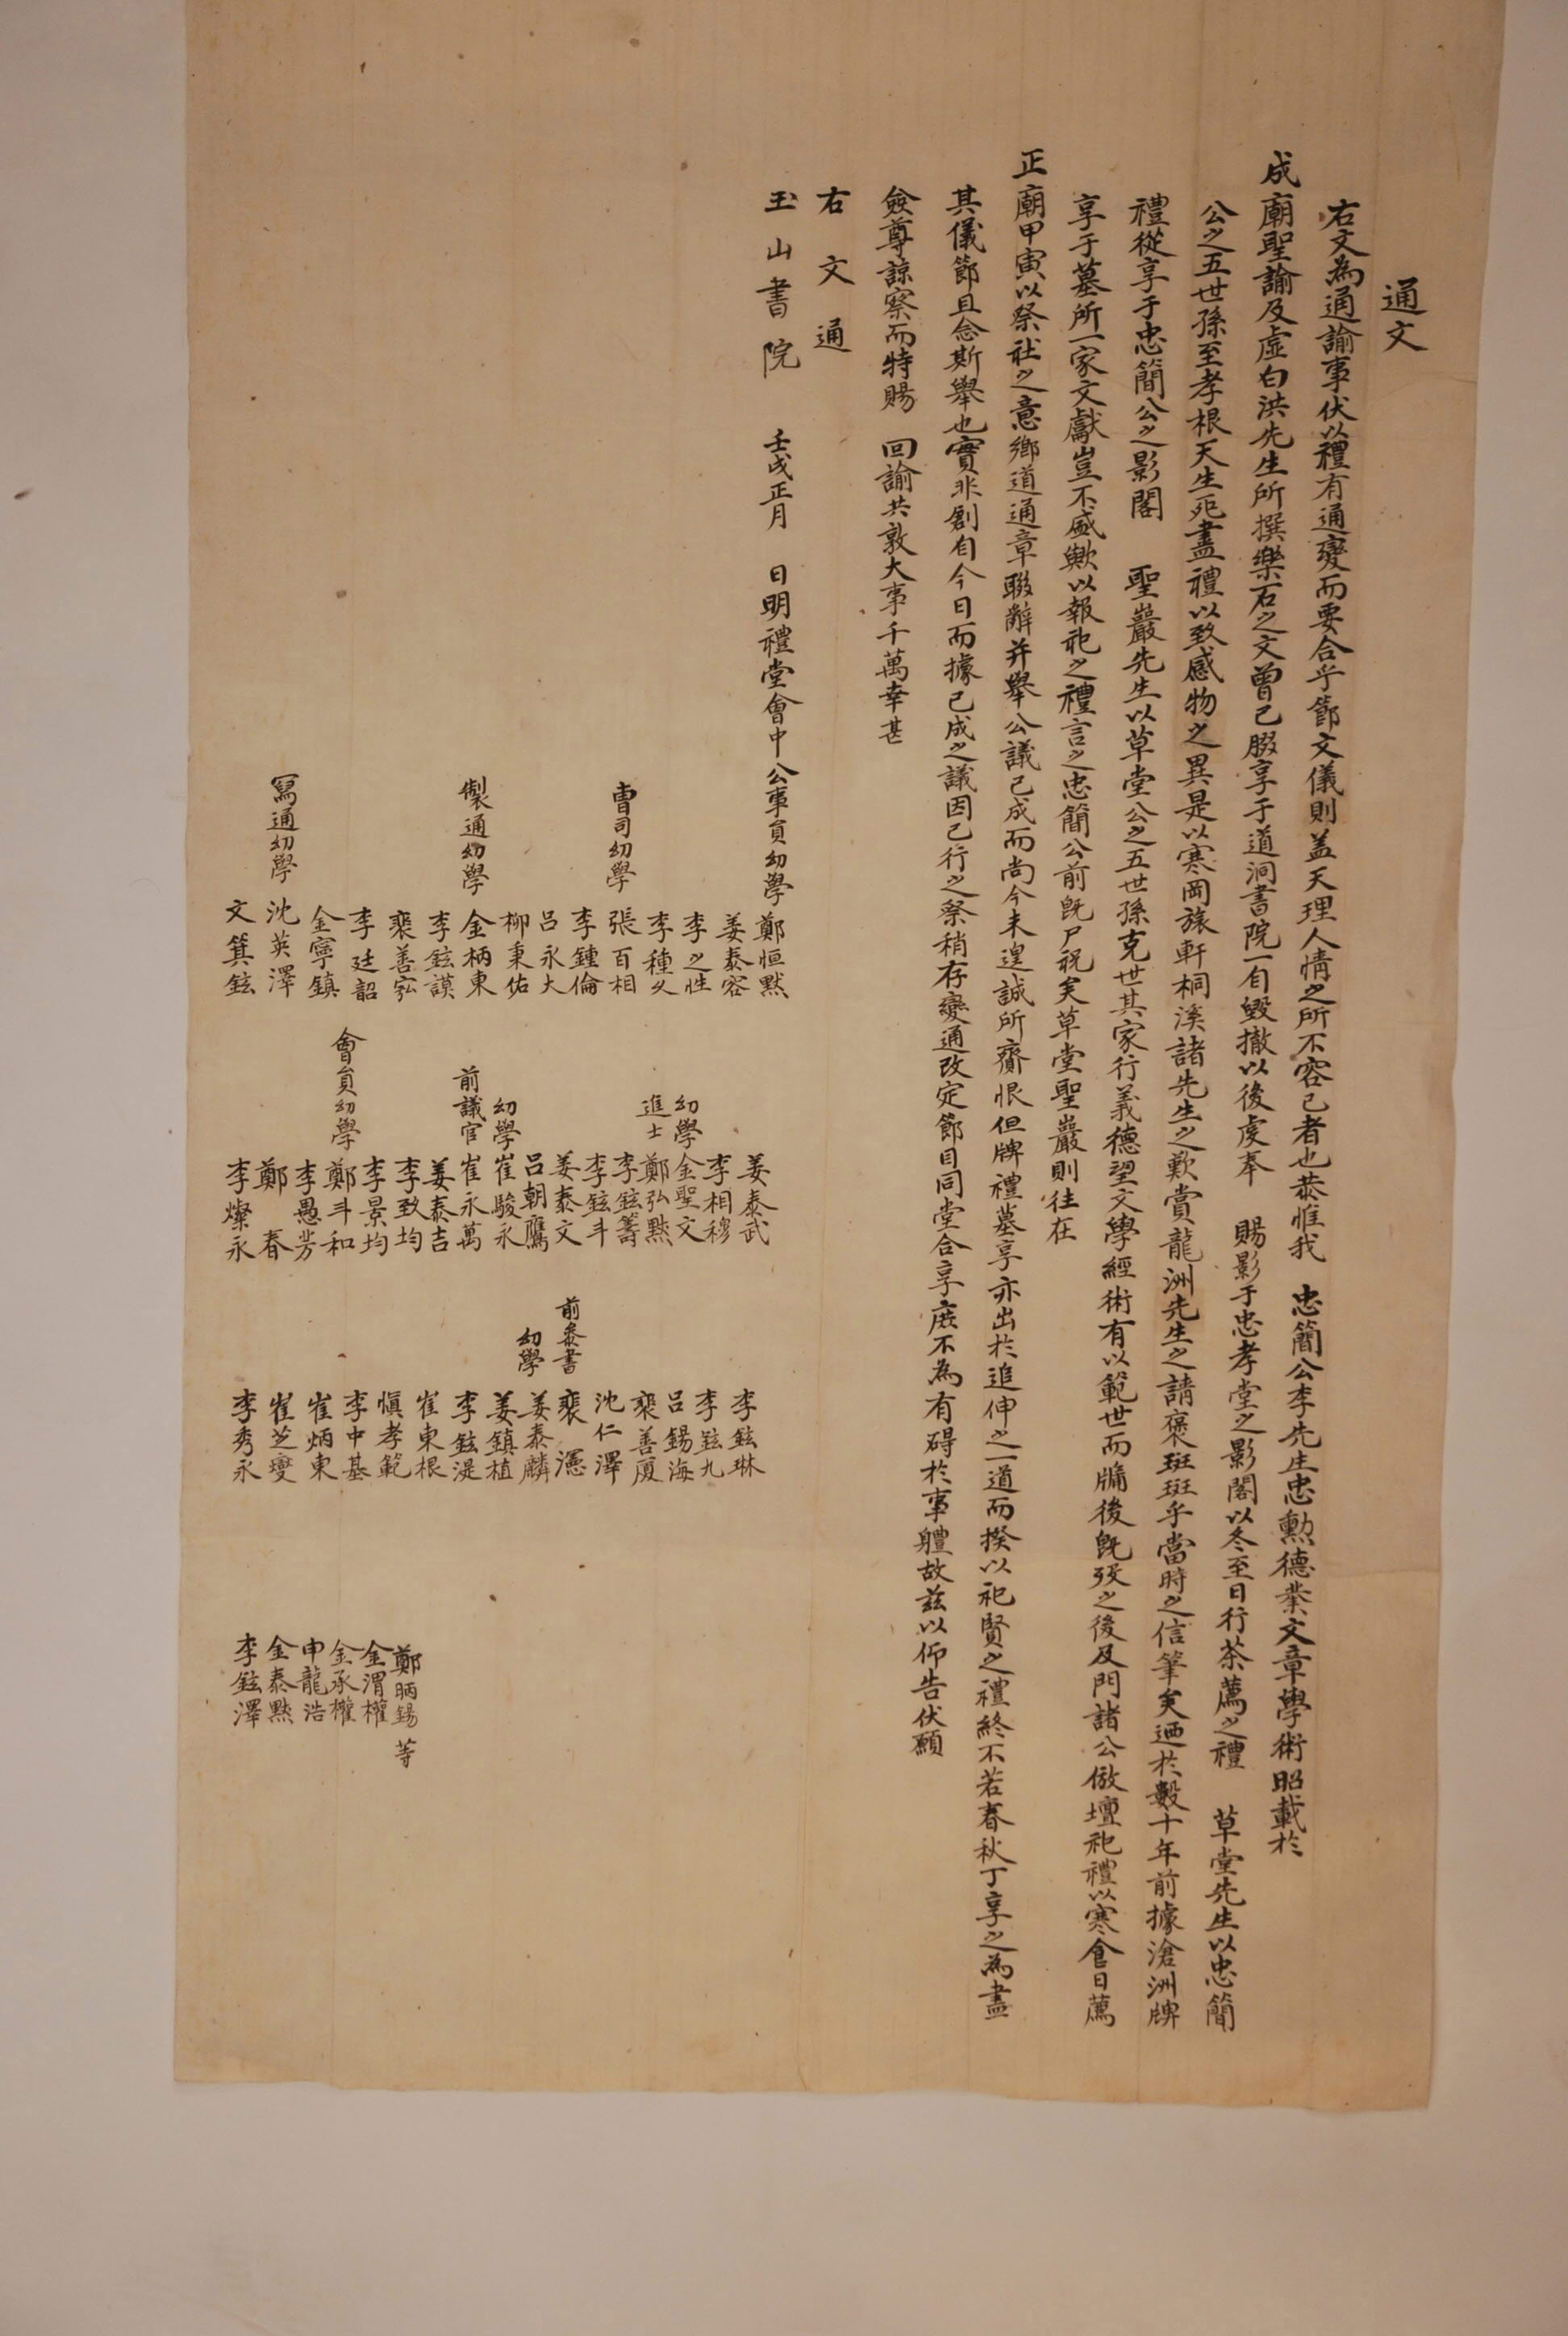 通文
右文為通諭事伏以禮有通變而要合乎節文儀則盖天理人情之所不容已者也恭惟我 忠簡公李先生忠勳德業文章學術昭載於
成廟聖諭及虛白洪先生所撰樂石之文曾已腏享于道洞書院一自毀撤以後虔奉 賜影于忠孝堂之影閣以冬至日行茶薦之禮 草堂先生以忠簡
公之五世孫至孝根天生死盡禮以致感物之異是以寒岡旅軒桐溪諸先生之歎賞龍洲先生之請褒斑斑乎當時之信筆矣迺於數十年前據滄洲牌
禮從享于忠簡公之影閣 聖巖先生以草堂公之五世孫克世其家行義德望文學經術有以範世而牖後旣歿之後及門諸公倣壇祀禮以寒食日薦
享于墓所一家文獻豈不盛歟以報祀之禮言之忠簡公前旣尸祝矣草堂聖巖則往在
正廟甲寅以祭社之意鄉道通章聯辭并擧公議已成而尚今未遑誠所齎恨但牌禮墓享亦出於追伸之一道而揆以祀賢之禮終不若春秋丁享之為盡
其儀節且念斯擧也實非創自今日而據已成之議因已行之祭稍存變通改定節目同堂合享庶不為有碍於事軆故玆以仰告伏願
僉尊諒察而特賜 回諭共敦大事千萬幸甚
右文通
玉山書院 壬戌正月 日明禮堂會中公事員幼學 鄭恒默
姜泰容
李之性
李種乂
曺司幼學 張百相
李鍾倫
呂永大
柳秉佑
製通幼學 金柄東
李鉉謨
裵善宖
李廷韶
金寧鎮
寫通幼學 沈英澤
文箕鉉
姜泰武
李相穆
幼學 金聖文
進士 鄭弘默
李鉉籌
李鉉斗
姜泰文
呂朝鷹
幼學 崔駿永
前議官 崔永萬
姜泰吉
李致均
李景均
會員幼學 鄭斗和
李愚芳
鄭 春
李燦永
李鉉琳
李鉉九
呂錫海
裵善厦
沈仁澤
前叅書 裵 憑
幼學 姜泰麟
姜鎮植
李鉉湜
崔東根
愼孝範
李中基
崔炳東
崔芝燮
李秀永
鄭昞錫 等
金渭權
金承權
申龍浩
金泰默
李鉉澤